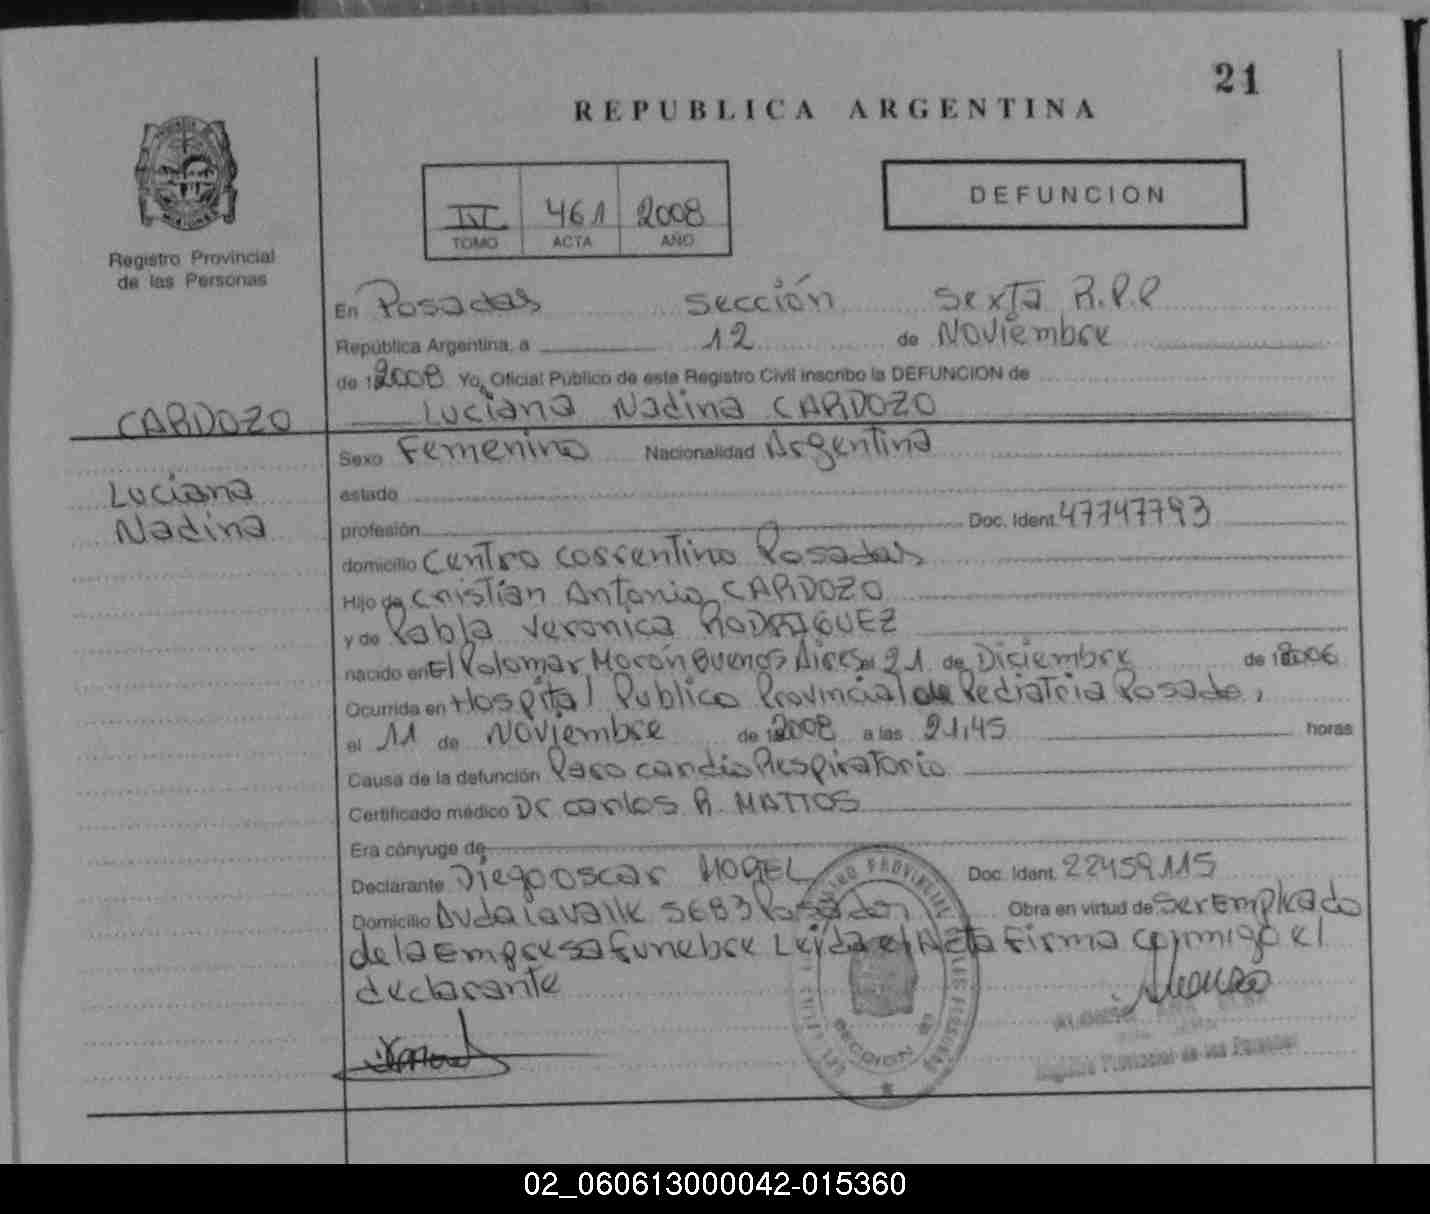 21
REPUBLICA ARGENTINA
IV 461 2008
TOMO ACTA AÑO
DEFUNCION
Registro Provincial
de las Personas
En Posadas Sección Sexta R.P.P
República Argentina, a 12 de Noviembre
de 12008 Yo, Oficial Público de este Registro Civil inscribo la DEFUNCION de
Luciana Nadina CARDOZO
CARDOZO
Luciana
Nadina
Sexo Femenino Nacionalidad Argentina
estado
profesión Doc. Ident. 47747793
domicilio Centro Correntino Posadas
Hijo de Cristian Antonio CARDOZO
y de Pabla Veronica RODRIGUEZ
nacido en El Palomar Morón Buenos Aires el 21 de Diciembre de 12006
Ocurrida en Hospital Publico Provincial de Pediatria Posadas,
el 11 de Noviembre de 12008 a las 21,45 horas
Causa de la defunción Paro cardio Respiratorio
Certificado médico Dr carlos R. MATTOS
Era cónyuge de
Declarante Diego oscar MOGEL Doc. Ident. 22459115
Domicilio Avda Lavalle 5683 Posadas Obra en virtud de Ser Empleado
de la Empresa funebre Leida el Acta Firma conmigo el
declarante
REGISTRO PROVINCIAL DE LAS PERSONAS
SECCION
Registro Provincial de las Personas
02_060613000042-015360